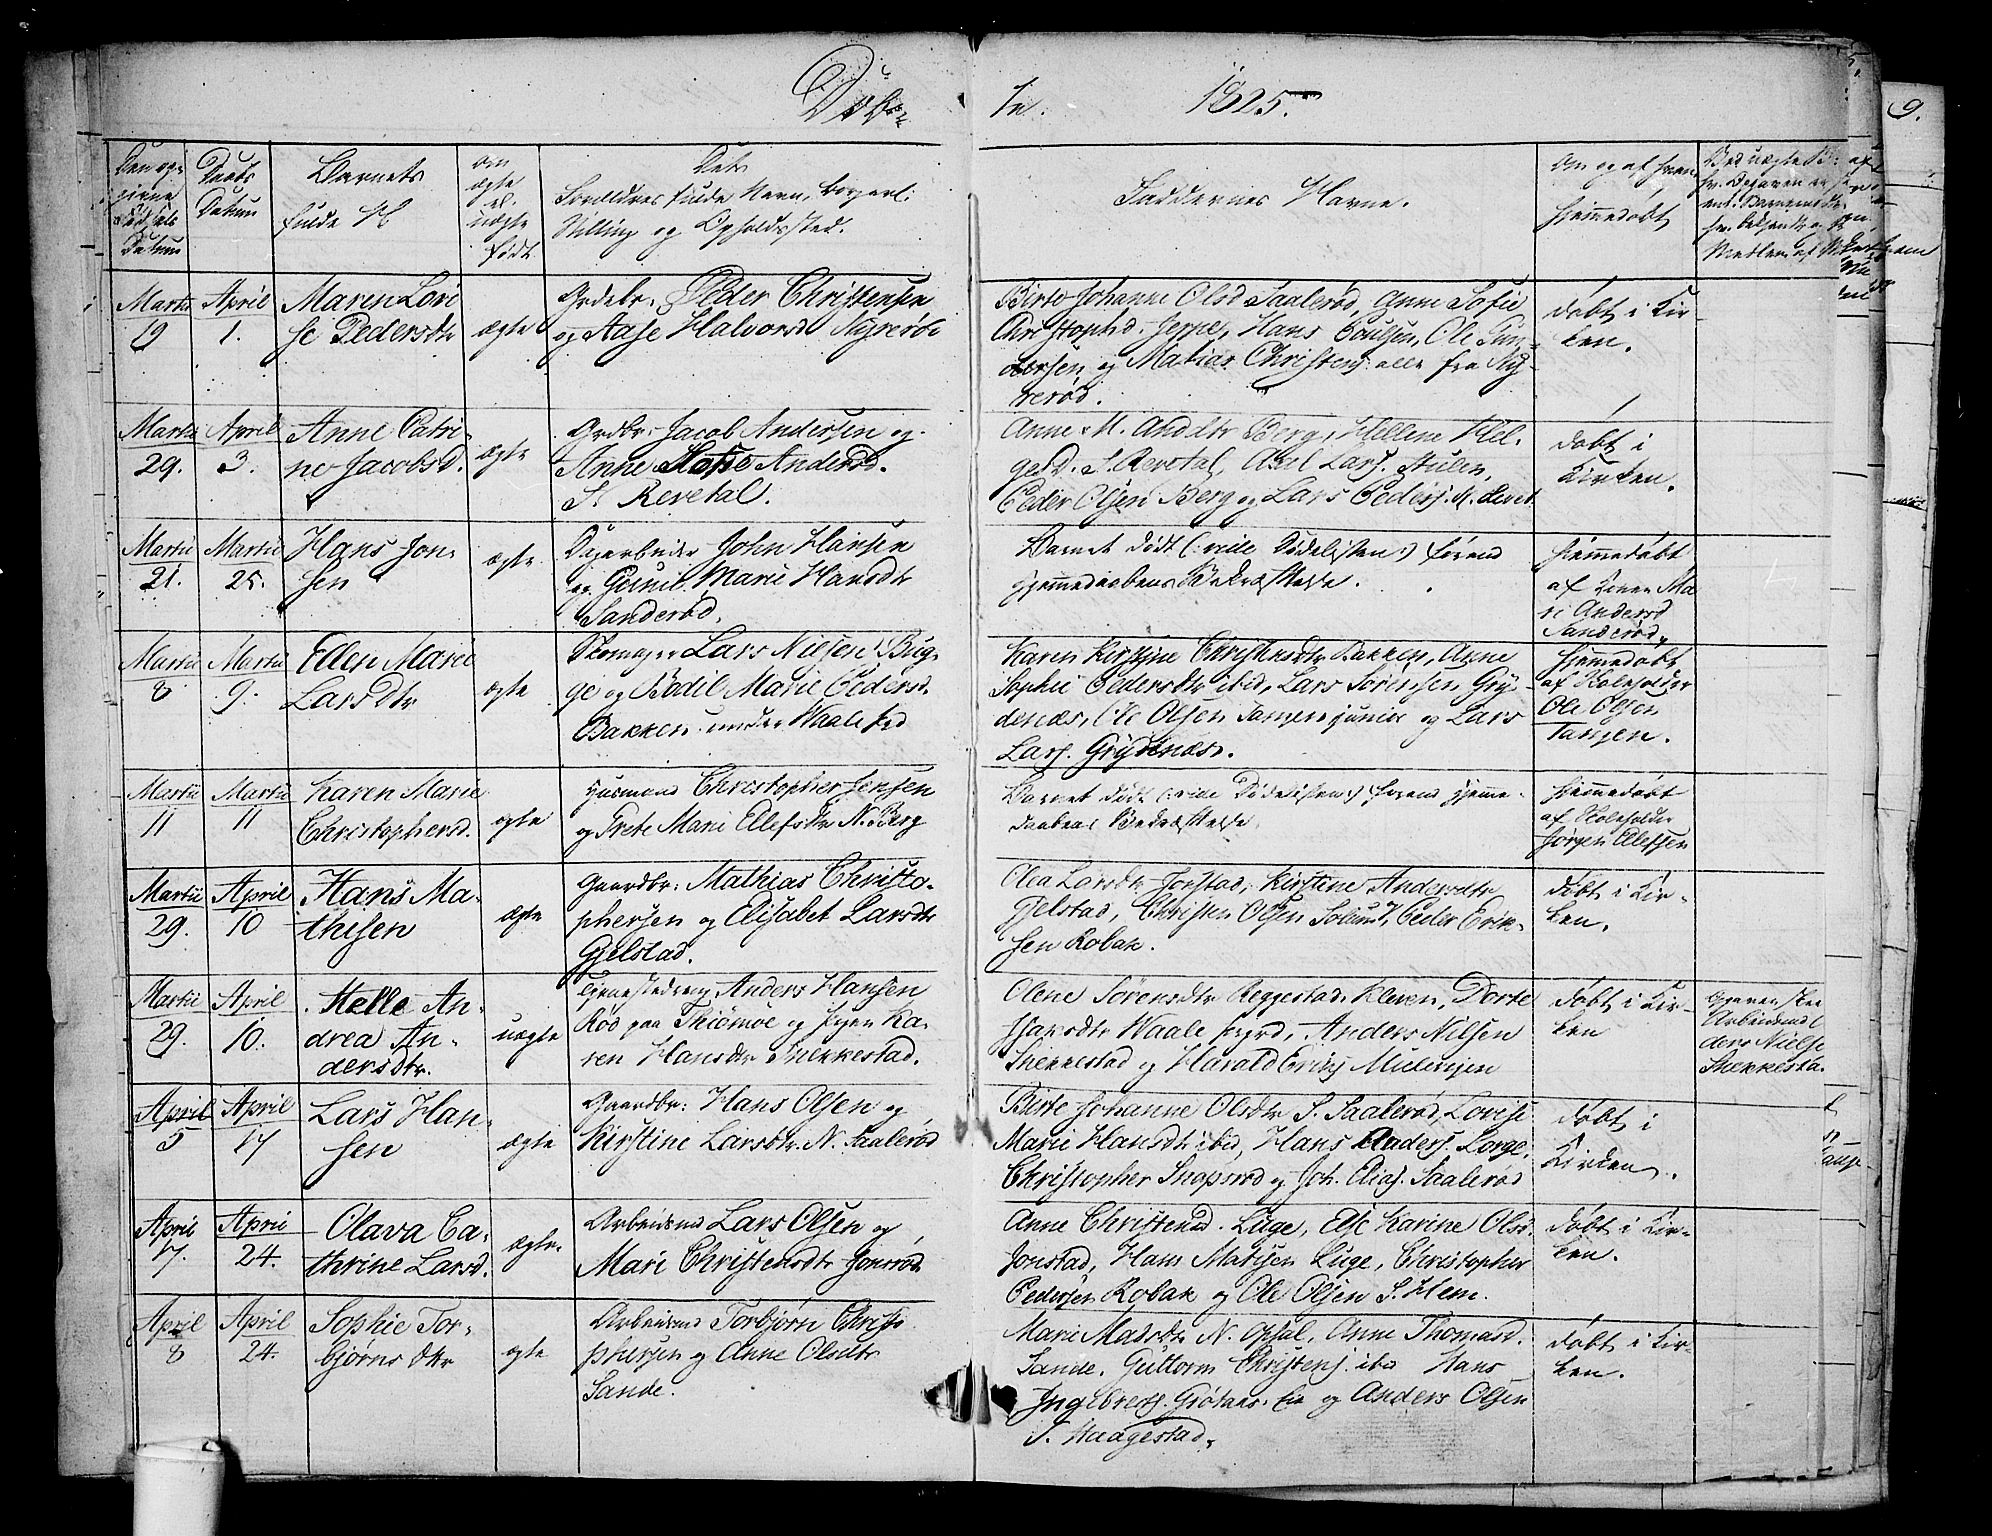 Døbte 1825.
9.
Den opgivne Fødsels Datum
Daabs Datum
Barnets fulde N
Om ægte el. uægte født
Dets Forældres fulde Navn, borgerl. Stilling og Opholdssted.
Faddernes Navne.
Om og af hvem hjemmedøbt
Martii 19
April 1.
Maren Lovi
se Pedersdtr
ægte
Grdbr. Peder Christensen
og Aase Halvorsd Nyrerød
Birte Johanne Olsd Saalerød, Anne Sofie
Christophd. Hans Poulsen, Ole Gun-
dersen og Matias Christens. alle fra Ny-
rerød.
døbt i Kir-
ken.
Martii 29.
April 3.
Anne Catri-
ne Jacobsd.
ægte
Grdbr. Jacob Andersen og
Anne Andersd.
S. Revetal.
Anne M. Anddtr Berg, Hellene Hel-
gesd. S. Revetal, Axel Lars.
Peder Olsen Berg og Lars Peders. N. Revet.
døbt i
Kirken.
Martii 21.
Martii 25.
Hans Jon-
sen
ægte
Dagarbeider John Hansen
og Gunil Marie Hansdtr
Sanderød.
Barnet dødt (: vide Dødelisten :) førend
Hjemmedaabens Bekræftelse.
hjemmedøbt
af Konen Ma
ri Andersd
Sanderød.
Martii 8
Martii 9.
Ellen Marie
Larsdtr
ægte
Skomager Lars Nielsen Bug-
ge og Bodil Marie Pedersd.
Bakken under Waale
Karen Kirstine Christensdtr Bakken, Anne
Sophie Pedersdtr ibid, Lars Sørensen Gry-
denæs, Ole Olsen Tangen junior og Lars
Lars. Grydenæs.
hjemmedøbt
af Skoleholder
Ole Olsen
Tangen.
Martii 11
Martii 11
Karen Marie
Christophersd.
ægte
Husmand Christopher Jensen
og Grete Marie Ellefsdtr N. Berg
Barnet dødt (: vide Dødelisten :) førend Hjemme-
daabens Bekræftelse.
hjemmedøbt
af Skoleholder
Jørgen Ellefsen
Martii 29.
April 10
Hans Ma-
thisen
ægte
Gaardbr: Mathias Christo-
phersen og Elisabet Larsdtr
Gjelstad.
Olea Larsdtr Jonstad, Kirstine Andersdtr
Gjelstad, Christen Olsen Solum, Peder Erik-
sen Robak.
døbt i Kir-
ken.
Martii 29.
April 10.
Helle An-
drea An-
dersdtr.
uægte
Tjenestedreng Anders Hansen
Rød paa Thiømoe og Pigen Ka-
ren Hansdtr Skekkestad.
Olene Sørensdtr Reggestad, Kleven, Dorte
Hansdtr Waale Anders Nilsen
Skekkestad og Harald Eriks.
døbt i Kir-
ken
Arbeidsmd
ders Nielse
Skekkesta.
April 5
April 17
Lars Han-
sen
ægte
Gaardbr: Hans Olsen og
Kirstine Larsdtr. N. Saalerød
Birte Johanne Olsdtr S. Saalerød, Lovise
Marie Hansdtr ibid, Hans Anders. Lorge,
Christopher Snapsrød og Joh. Elias. Saalerød
døbt i
Kirken.
April 17.
April 24.
Olava Ca-
thrine Larsd.
ægte
Arbeidsmd Lars Olsen og
Mari Christensdtr Jonsrød
Anne Christensd. Luge, Else Karine Olsd.
Jonstad, Hans Matisen Luge, Christopher
Pedersen Robak og Ole Olsen S. Hem.
døbt i Kir-
ken.
April 8
April 24.
Sophie Tor-
bjørns dtr
ægte
Arbeidsmd Torbjørn Christo
phersen og Anne Olsdtr
Sande.
Marie Madsdtr N. Opsal, Anne Thomasd.
Sande, Guttorm Christens. ibd Hans
Ingebrets. og Anders Olsen
S. Haagestad.
døbt i Kir-
ken.